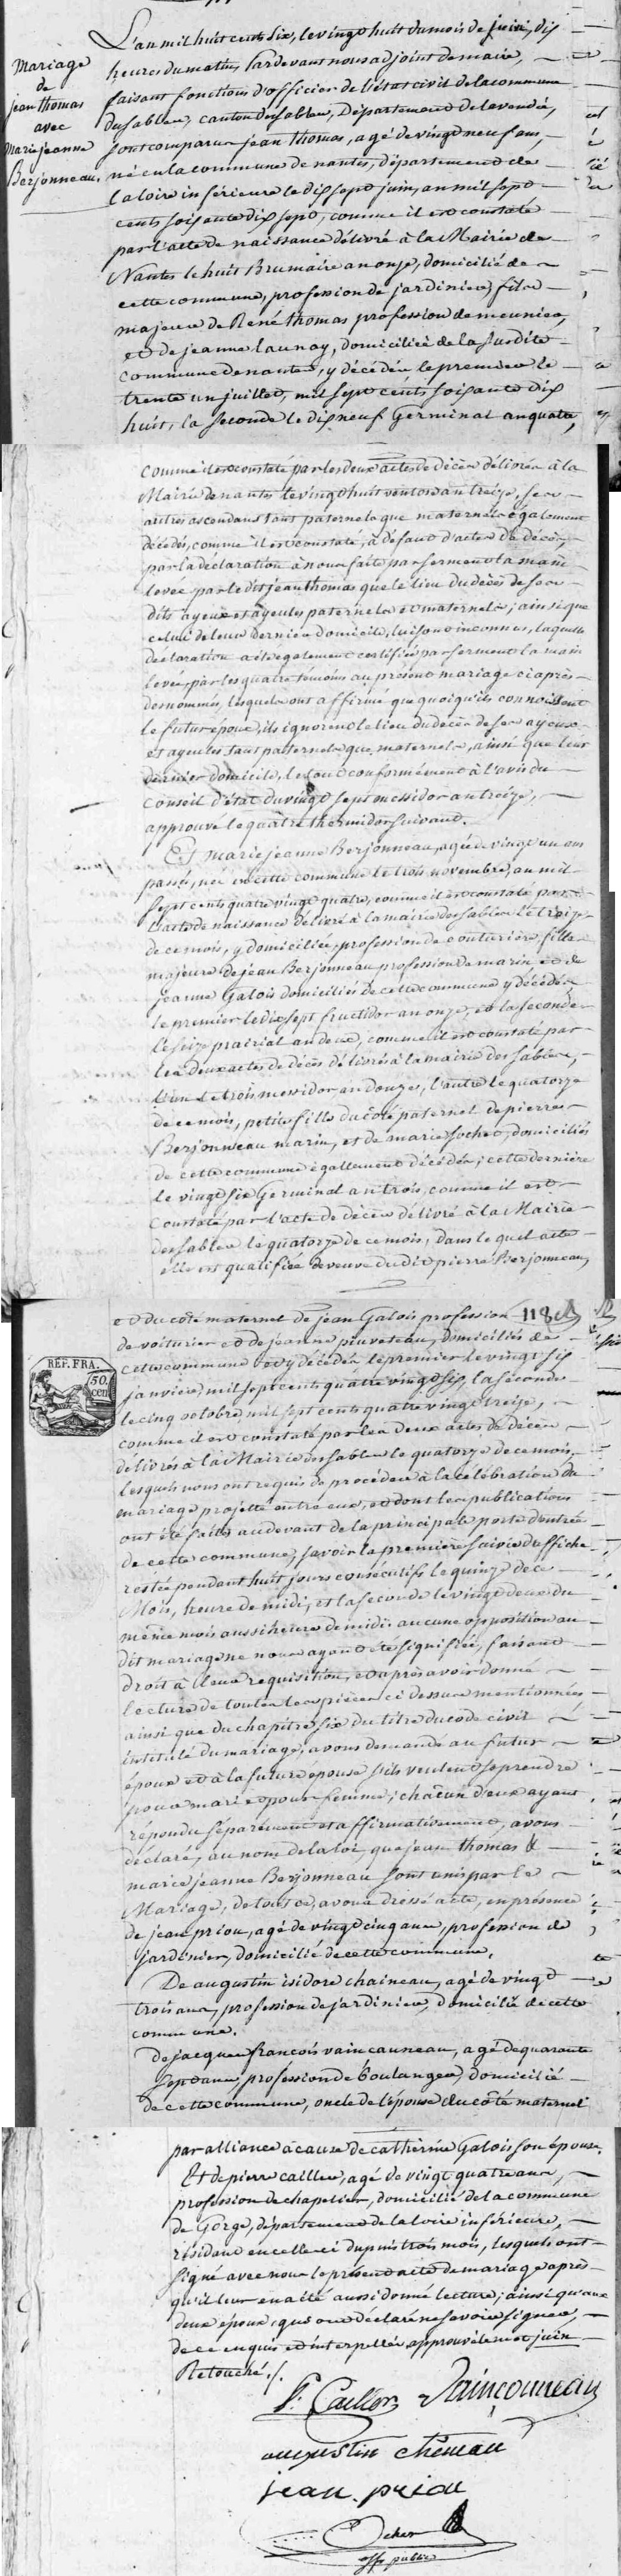 Mariage
de
jean thomas
avec
marie jeanne
Berjonneau.
L'an mil huit cent six, le vingt huit du mois de juin, dix
heures du matin, Pardevant nous adjoint de maire,
faisant fonctions d'officier de l'état civil de la commune
des sables, canton des sables, Département de la vendée,
sont comparus jean thomas, agé de vingt neuf ans,
né en la commune de nantes, département de
la loire inférieure le dix sept juin, an mil sept
cents soixante dix sept, comme il est constaté
par l'acte de naissance délivré à la Mairie de
Nantes le huit Brumaire an onze, domicilié de
cette commune, profession de jardinier, fils
majeur de René thomas profession de meunier,
et de jeanne launay, domiciliés de la susdite
commune de nantes, y décédés le premier le
trente un juillet, mil sept cents soixante dix
huit, la seconde le dix neuf Germinal an quatre,
comme il est constaté par les deux actes de décès délivrés à la
Mairie de nantes le vingt huit ventose an treize, ses
autres ascendans tant paternels que maternels également
décédés, comme il est constaté, à défaut d'actes de décès,
par la déclaration à nous faite par serment la main
levée par le dit jean thomas que le lieu du décès de ses
dits ayeux et ayeules paternels et maternels; ainsi que
celui de leur dernier domicile, lui sont inconnus, laquelle
déclaration a été également certifiée par serment la main
levée, par les quatre témoins au présent mariage ci après
dénommés, lesquels ont affirmé que quoiqu'ils connoissent
le futur époux, ils ignorent le lieu du décès de ses ayeux
et ayeules tant paternels que maternels, ainsi que leur
dernier domicile, le tout conformément à l'avis du
Conseil d'état du vingt sept messidor an treize,
approuvé le quatre thermidor suivant.
Et marie jeanne Berjonneau, agée de vingt un ans
passés, née en cette commune le trois novembre, an mil
sept cents quatre vingt quatre, comme il est constaté par
l'acte de naissance délivré à la mairie des sables le treize
de ce mois, y domiciliée, profession de couturière, fille
majeure de jean Berjonneau profession de marin et de
jeanne Galois domiciliés de cette commune y décédés
le premier le dix sept fructidor an onze, et la seconde
le seize prairial an deux, comme il est constaté par
les deux actes de décès délivrés à la mairie des sables,
l'un le trois messidor an douze, l'autre le quatorze
de ce mois, petite fille du côté paternel de pierre
Berjonneau marin, et de marie Jochet, domiciliés
de cette commune égallement décédés; cette dernière
le vingt six Germinal an trois, comme il est
constaté par l'acte de décès délivré à la Mairie
des sables le quatorze de ce mois, dans lequel acte
elle est qualifiée de veuve du dit pierre Berjonneau,
118
et du côté maternel de jean Galois profession
de voiturier et de jeanne piuveteau, domiciliés de
cette commune et y décédés le premier le vingt six
REP. FRA.
50
cen
janvier, mil sept cents quatre vingt six, la seconde
le cinq octobre mil sept cents quatre vingt treize,
comme il est constaté par les deux actes de décès
délivrés à la Mairie des sables le quatorze de ce mois,
lesquels nous ont requis de procéder à la célébration du
mariage projetté entre eux, et dont les publications
ont été faites au devant de la principale porte d'entrée
de cette commune, savoir la première suivie d'affiche
restée pendant huit jours consécutifs le quinze de ce
Mois, heure de midi, et la seconde le vingt deux du
même mois aussi heure de midi. aucune opposition au
dit mariage ne nous ayant été signifiée, faisant
droit à leur requisition, et après avoir donné
lecture de toutes les pièces ci dessus mentionnées
ainsi que du chapitre six du titre du code civil
intitulé du mariage, avons demandé au futur
époux et à la future épouse s'ils veulent se prendre
pour mari et pour femme; chacun d'eux ayant
répondu séparément et affirmativement, avons
déclaré, au nom de la loi, que jean thomas &
marie jeanne Berjonneau sont unis par le
Mariage, de tout ce, avons dressé acte, en présence
de jean priou, agé de vingt cinq ans, profession de
jardinier, domicilié de cette commune.
De augustin isidore chaineau, agé de vingt
trois ans, profession de jardinier, domicilié de cette
commune.
de jacques françois vaincauneau, agé de quarante
sept ans, profession de boulanger, domicilié
de cette commune, oncle de l'épouse du côté maternel
par alliance à cause de catherine Galois son épouse.
Et de pierre cailler, agé de vingt quatre ans,
profession de chapelier, domicilié de la commune
de Gorge, département de la loire inférieure,
résidant en celle ci depuis trois mois, lesquels ont
signé avec nous le présent acte de mariage après
qu'il leur en a été aussi donné lecture; ainsi qu'aux
deux époux, qui ont déclaré ne savoir signer,
de ce enquis et interpellés approuvé le mot juin
Retouché./.
P. Caillor Vainconneau
augustin chéneau
jean priou
offr public